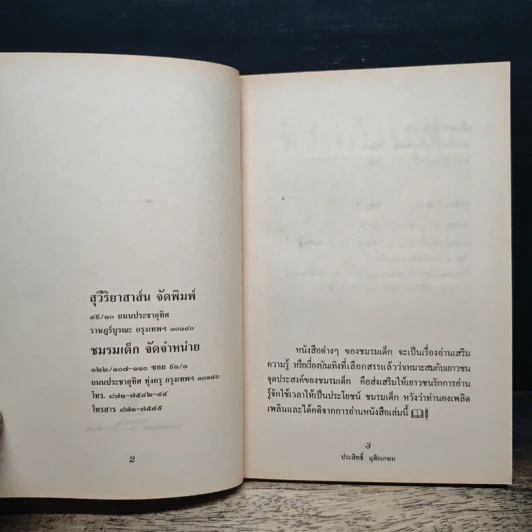 สุวีริยาสาส์น จัดพิมพ์
๔๕/๑๐ ถนนประชาอุทิศ
ราษฎร์บูรณะ กรุงเทพฯ ๑๐๑๔๐
ชมรมเด็ก จัดจำหน่าย
๑๒๒/๑๐๘-๑๑๐ ซอย ๕๑/๑
ถนนประชาอุทิศ ทุ่งครุ กรุงเทพฯ ๑๐๑๔๐
โทร. ๘๗๑-๗๕๔๒-๔๔
โทรสาร ๘๗๑-๗๕๔๕
2
หนังสือต่างๆ ของชมรมเด็ก จะเป็นเรื่องอ่านเสริม
ความรู้ หรือเรื่องบันเทิงที่เลือกสรรแล้วว่าเหมาะสมกับเยาวชน
จุดประสงค์ของชมรมเด็ก คือส่งเสริมให้เยาวชนรักการอ่าน
รู้จักใช้เวลาให้เป็นประโยชน์ ชมรมเด็ก หวังว่าท่านคงเพลิด
เพลินและได้คติจากการอ่านหนังสือเล่มนี้
3
ประสิทธิ์ มุสิกเกษม